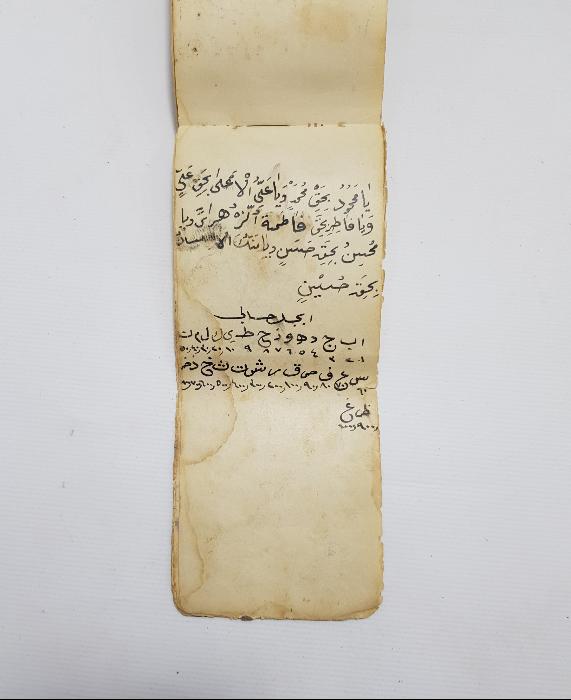 يا محمود بحق محمد ويا عليّ الأعلى بحق عليّ
ويا فاطر بحق فاطمة الزهراء ويا
محسن بحق حسن ويا الاحسان
بحق حسين
ابجد حسابی
ا ب ج د ه و ز ح ط ي ك ل م ن
١ ٢ ٣ ٤ ٥ ٦ ٧ ٨ ٩ ١٠ ٢٠ ٣٠ ٤٠ ٥٠
س ع ف ص ق ر ش ت ث خ ذ ض
٦٠ ٧٠ ٨٠ ٩٠ ١٠٠ ٢٠٠ ٣٠٠ ٤٠٠ ٥٠٠ ٦٠٠ ٧٠٠
ظ غ
٩٠٠